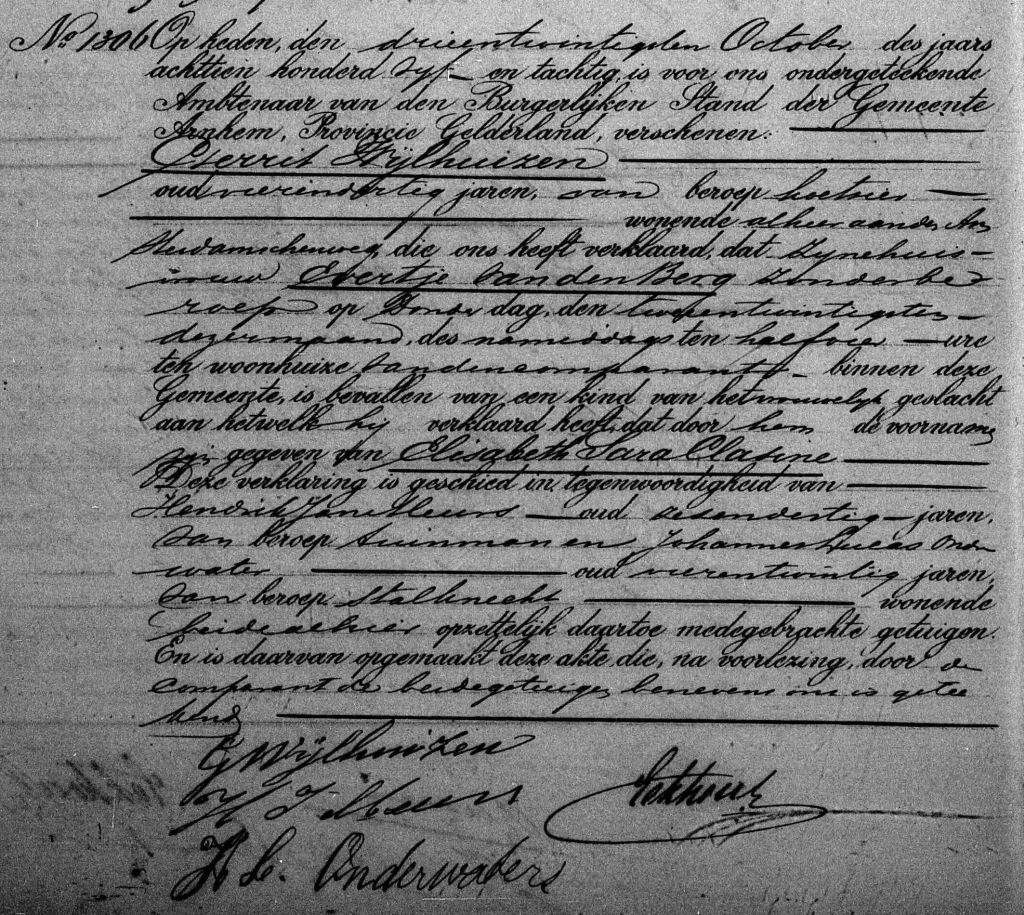 No 1306 Op heden, den drieentwintigsten October des jaars
achttien honderd vyf en tachtig, is voor ons ondergeteekende
Ambtenaar van den Burgerlijken Stand der Gemeente
Arnhem, Provincie Gelderland, verschenen:
Gerrit Wijlhuizen
oud vierendertig jaren, van beroep koetsier
wonende alhier aan den Am
sterdamschenweg, die ons heeft verklaard, dat zyne huis-
vrouw Evertje van den Berg zonder be
roep op Donderdag, den tweeentwintigsten
dezer maand, des namiddags ten half vier ure
ten woonhuize van den comparant binnen deze
Gemeente, is bevallen van een kind van het vrouwelyk geslacht
aan hetwelk hij verklaard heeft, dat door hem de voornamen
zijn gegeven van Elisabeth Sara Clasine
Deze verklaring is geschied in tegenwoordigheid van
Hendrik Jan oud zesendertig jaren,
van beroep tuinman en Johannes Lucas Onder
water oud vierentwintig jaren,
van beroep stalknecht wonende
beide alhier opzettelijk daartoe medegebrachte getuigen.
En is daarvan opgemaakt deze akte, die, na voorlezing, door de
comparant de beide getuigen benevens ons is getee
kend
G Wijlhuizen
H J
Onderwaters